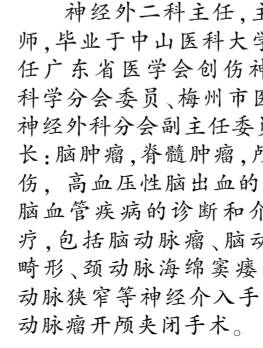 神经外二科主任,主
师,毕业于中山医科大学
任广东省医学会创伤神
科学分会委员、梅州市医
神经外科分会副主任委员
长:脑肿瘤,脊髓肿瘤,颅
伤,高血压性脑出血的
脑血管疾病的诊断和介
疗,包括脑动脉瘤、脑动
畸形、颈动脉海绵窦瘘
动脉狭窄等神经介入手
动脉瘤开颅夹闭手术。